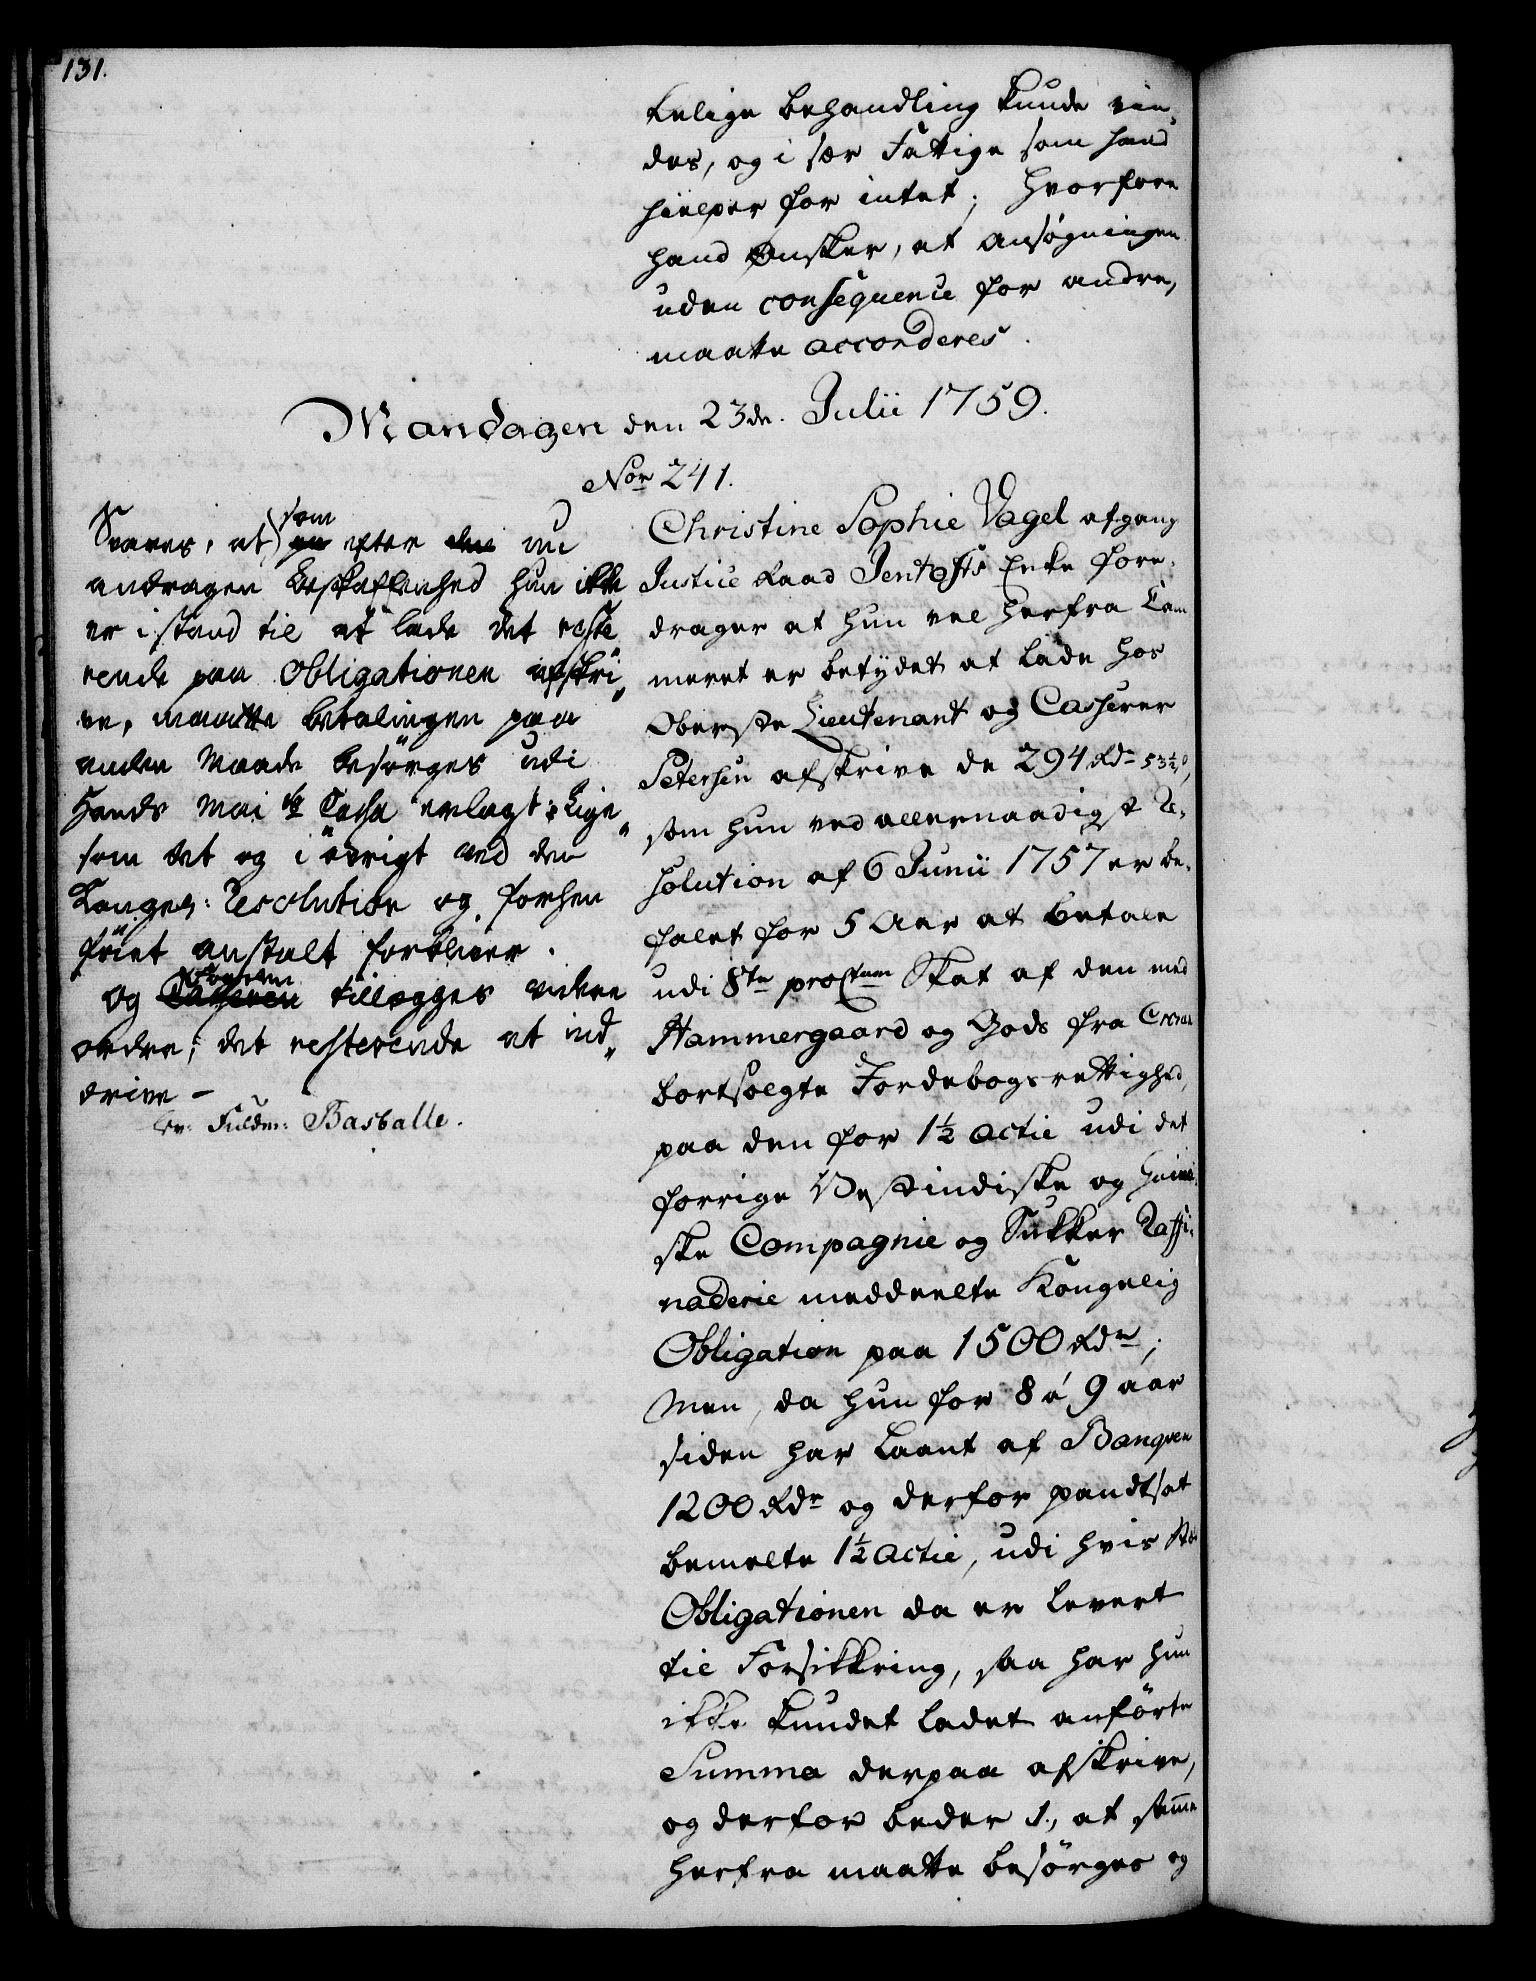 131.
kelige behandling kunde vin-
des, og i sær Fattige som hand
hielper for intet; hvorfore
hand ønsker, at ansøgningen
uden consequence for andre,
maatte accorderes.
Mandagen den 23de. Julii 1759.
Nor 241.
Svares, at som efter nu
andragen beskaffenhed hun ikke
er i stand til at lade det reste
rende paa Obligationen afskri
ve, maatte betalingen paa
anden Maade besørges udi
Hands Mai tz Cassa erlagt; Lige
som det og i øvrigt ved den
Konges: Resolution og forhen
føiet anstalt forbliver.
og Fogden tillegges videre
ordre, det resterende at ind
drive -
Fuldm: Basballe.
Christine Sophie Vagel afgang
Justice Raad Jentofts Enke fore-
drager at hun vel herfra Cam
meret er betydet at lade hos
Oberste Lieutenant og Casserer
Petersen afskrive de 294 Rdr 53½ s,
som hun ved allernaadigst Re-
solution af 6 Junii 1757 er be-
falet for 5 Aar at betale
udi 8te proCtum Skat af den med
Hammergaard og Gods fra Cronen
bortsolgte Jordebogsrettighed,
paa den for 1½ actie udi det
forrige Vestindiske og Guinei-
ske Compagnie og Sukker Raffi-
naderie meddeelte Kongelig
Obligation paa 1500 Rdr;
Men, da hun for 8 á 9 aar
siden har laant af Banqven
1200 Rdr og derfor pandtsat
bemelte 1½ Actie, udi hvis Sted
Obligationen da er levert
til Forsikkring, saa har hun
ikke kundet ladet anførte
Summa derpaa afskrive,
og derfor beder 1., at samme
herfra maatte besørges og